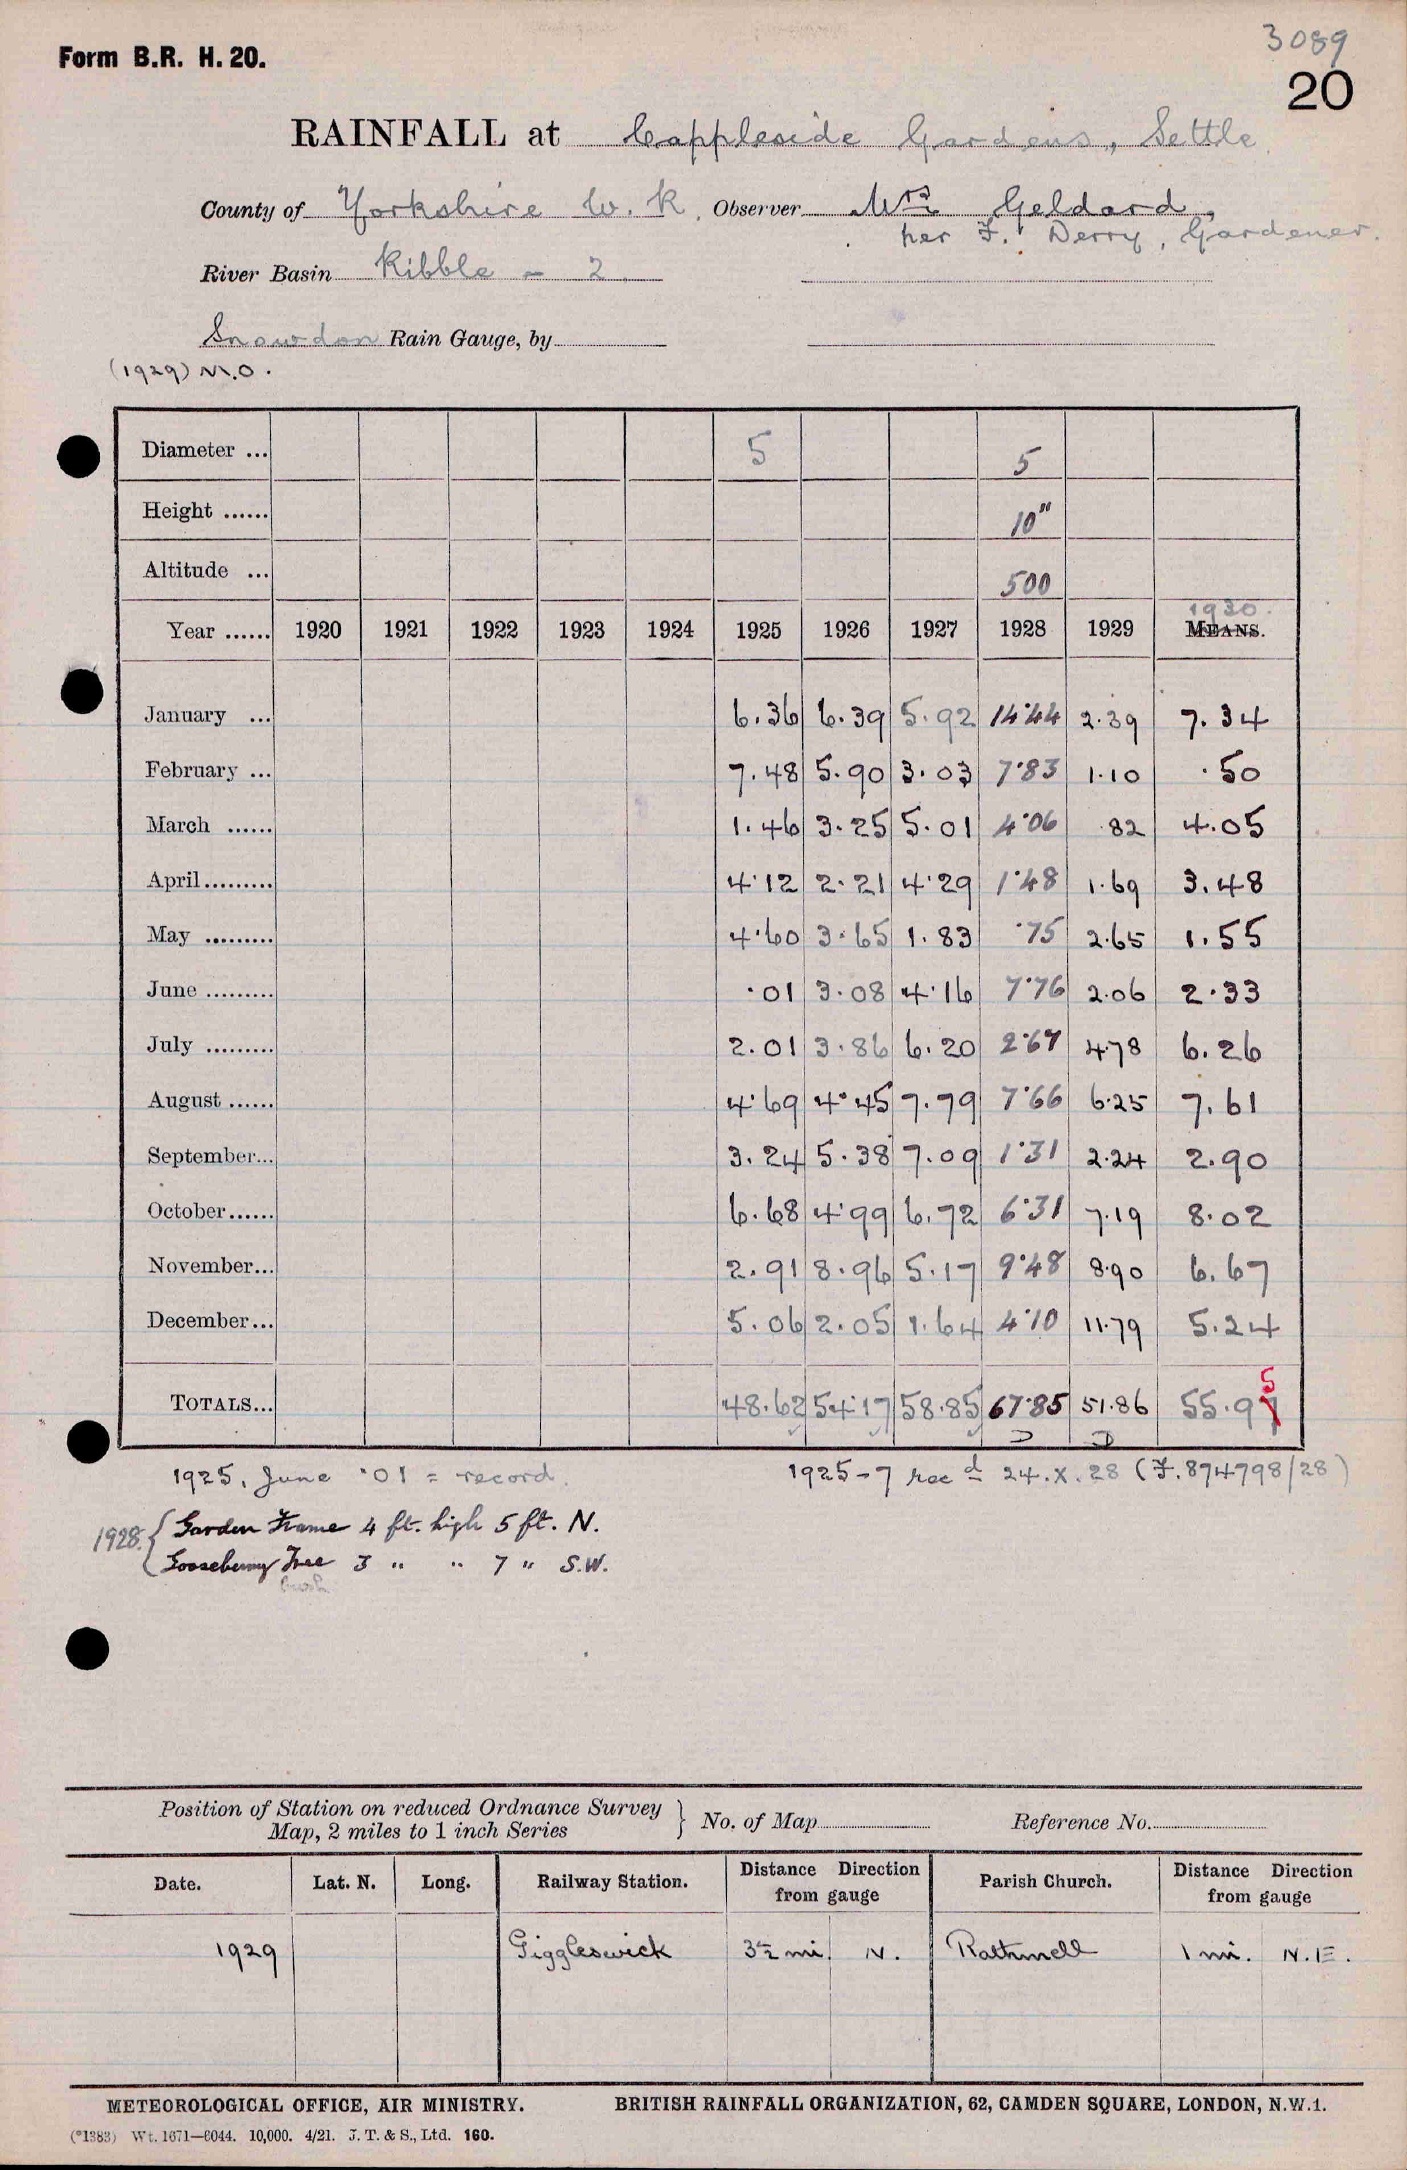 3089
Form B.R. H. 20.
20
RAINFALL at Cappleside Gardens, Settle
County of Yorkshire W. R. Observer Mrs Geldard,
per F. Derry, Gardener.
River Basin Ribble - 2
Snowdon Rain Gauge, by
(1929) M.O.
Diameter ... 5 5
Height ...... 10"
Altitude ... 500
1930.
Year ...... 1920 1921 1922 1923 1924 1925 1926 1927 1928 1929 MEANS.
January ... 6.36 6.39 5.92 14.44 2.39 7.34
February ... 7.48 5.90 3.03 7.83 1.10 .50
March ...... 1.46 3.25 5.01 4.06 .82 4.05
April......... 4.12 2.21 4.29 1.48 1.69 3.48
May ......... 4.60 3.65 1.83 .75 2.65 1.55
June ......... .01 3.08 4.16 7.76 2.06 2.33
July ......... 2.01 3.86 6.20 2.67 4.78 6.26
August ...... 4.69 4.45 7.79 7.66 6.25 7.61
September... 3.24 5.38 7.09 1.31 2.24 2.90
October...... 6.68 4.99 6.72 6.31 7.19 8.02
November... 2.91 8.96 5.17 9.48 8.90 6.67
December... 5.06 2.05 1.64 4.10 11.79 5.24
5
TOTALS... 48.62 54.17 58.85 67.85 51.86 55.97
1925, June .01 = record.
1925-7 recd 24.X.28 (F.874798/28)
1928. { Garden Frame 4 ft. high 5 ft. N.
Gooseberry Tree 3 " " 7 " S.W.
bush
Position of Station on reduced Ordnance Survey
Map, 2 miles to 1 inch Series } No. of Map Reference No.
Date. Lat. N. Long. Railway Station. Distance Direction from gauge Parish Church. Distance Direction from gauge
1929 Giggleswick 3½ mi. N. Rathmell 1 mi. N.E.
METEOROLOGICAL OFFICE, AIR MINISTRY. BRITISH RAINFALL ORGANIZATION, 62, CAMDEN SQUARE, LONDON, N.W.1.
(*1383) Wt. 1671—6044. 10,000. 4/21. J. T. & S., Ltd. 160.